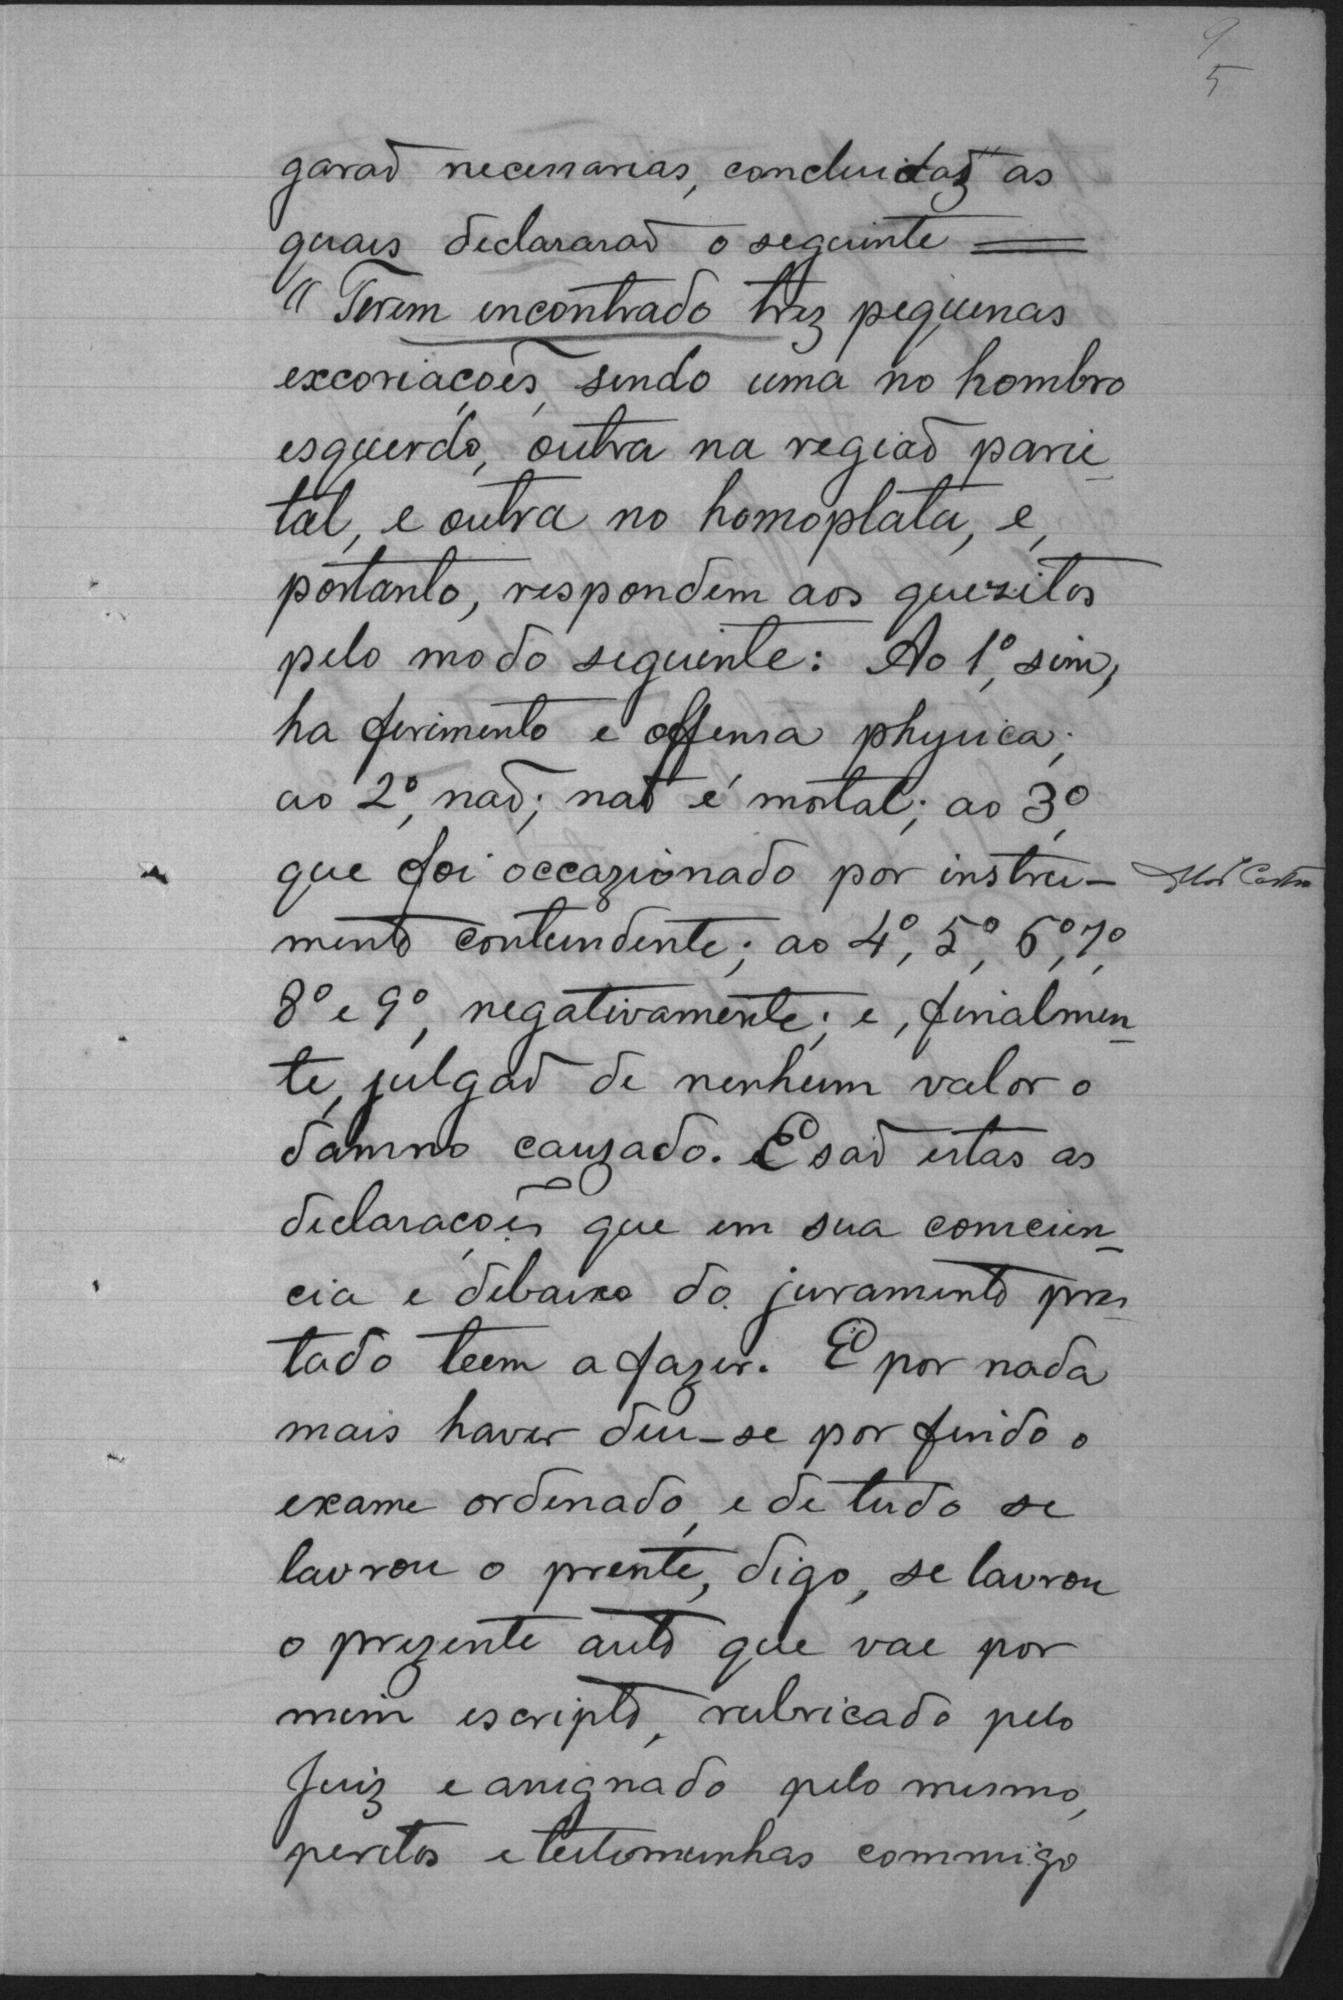 9
5
garaõ necessarias, concluidas as
quaes declararaõ o seguinte ═
"Terem encontrado trez pequenas
excoriações, sendo uma no hombro
esquerdo, outra na regiaõ parie-
tal, e outra no homoplata, e,
portanto, respondem aos quezitos
pelo modo seguinte: Ao 1º, sim,
ha ferimento e offensa physica;
ao 2º, naõ; naõ é mortal; ao 3º,
que foi occazionado por instru-
mento contundente; ao 4º, 5º, 6º, 7º,
8º e 9º, negativamente; e, finalmen-
te, julgaõ de nenhum valor o
damno cauzado. E saõ estas as
declarações que em sua conscien-
cia e debaixo do juramento pres-
tado teem a fazer. E por nada
mais haver deu-se por findo o
exame ordenado, e de tudo se
lavrou o prente, digo, se lavrou
o prezente auto que vae por
mim escripto, rubricado pelo
Juiz e assignado pelo mesmo,
peritos e testemunhas commigo